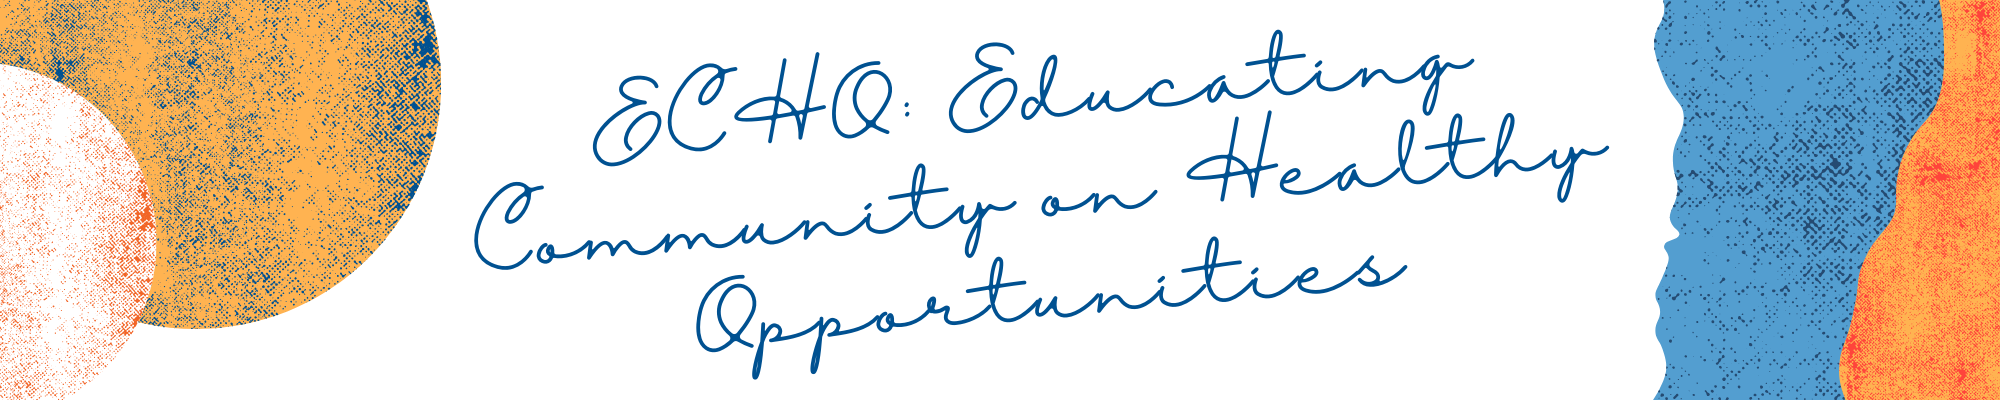 ECHO: Educating
Community on Healthy
Opportunities